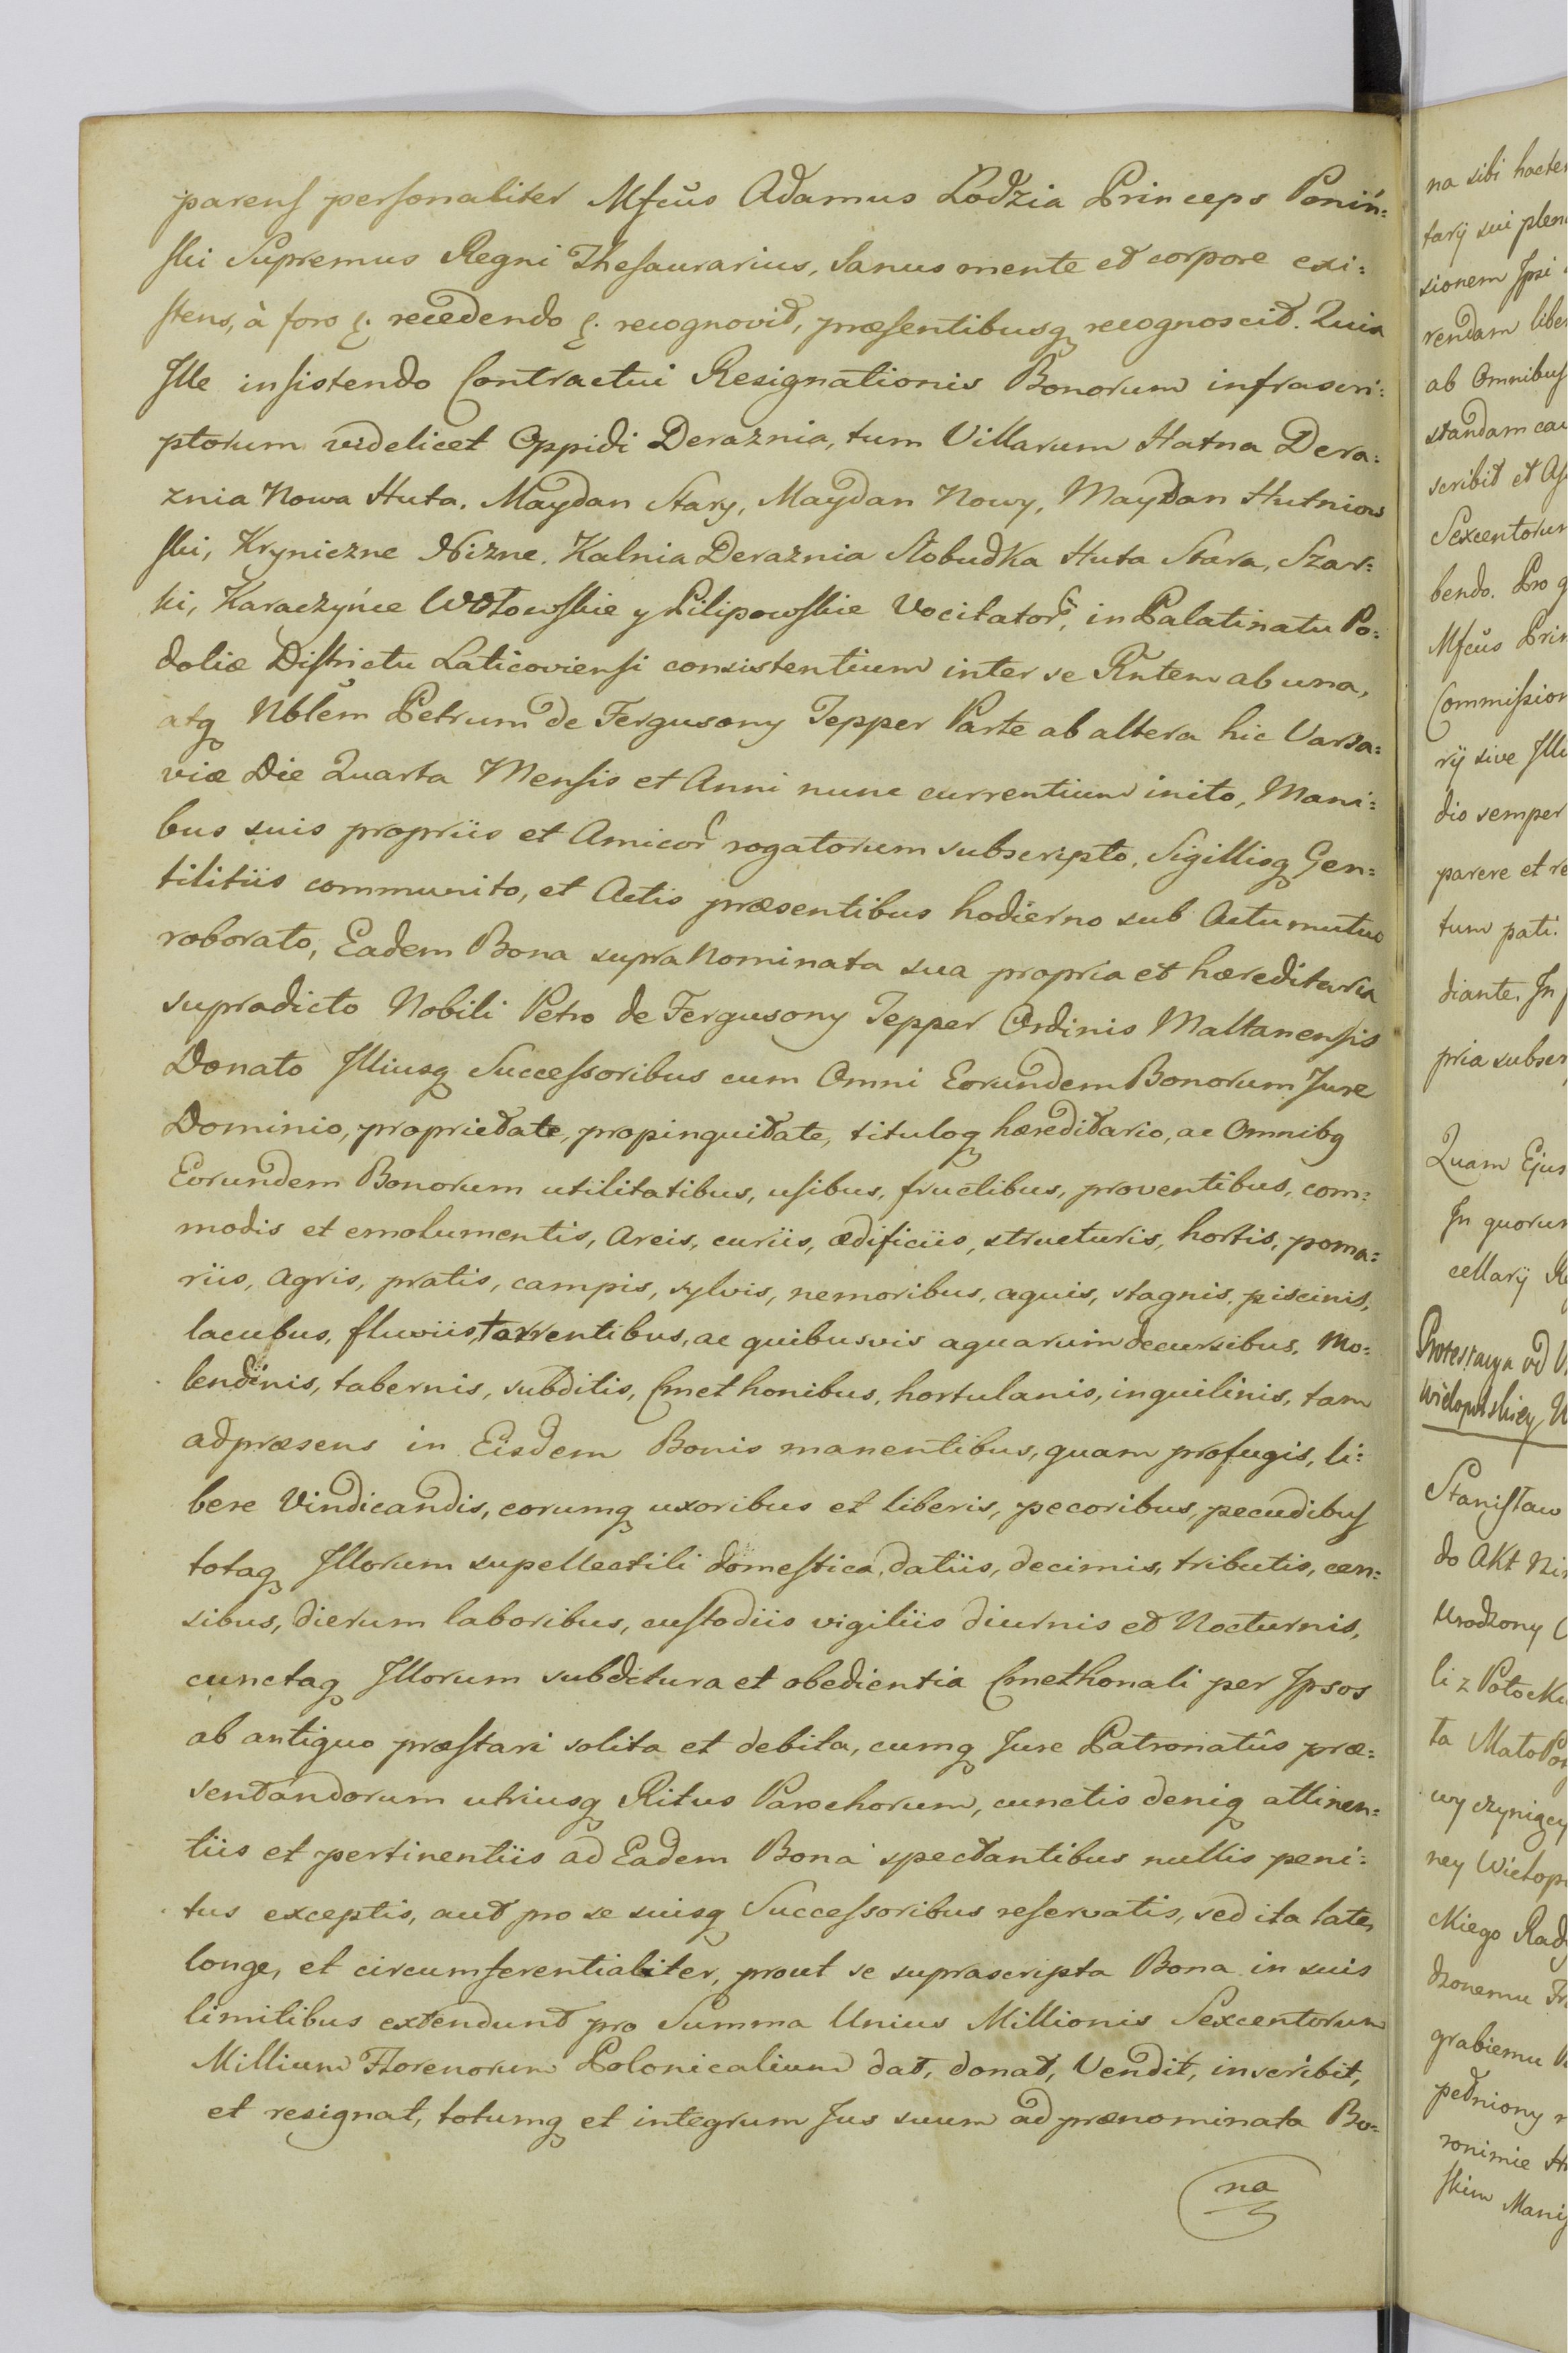 parens personaliter Mfcus Adamus Lodzia Princeps Poniń:
ski Supremus Regni Thesaurarius, Sanus mente et corpore exi:
stens, à foro &. recedendo &. recognovit, præsentibusq recognoscit. Quia
Ille insistendo Contractui Resignationis Bonorum infrascri:
ptorum videlicet Oppidi Deraznia, tum Villarum Hatna Dera:
znia Nowa Huta. Maydan Stary, Maydan Nowy, Maydan Hutniow
ski, Kryniczne Nizne. Kalnia Deraznia Slobudka Huta Stara, Szar:
ki, Karaczyńce Wołowskie y Filipowskie Vocitator, in Palatinatu Po:
doliæ Districtu Laticoviensi consistentium inter se Rntem ab una,
atq Nblem Petrum de Fergusony Tepper Parte ab altera hic Varsa:
viæ Die Quarta Mensis et Anni nunc currentium inito, Mani:
bus suis propriis et Amicor rogatorum subscripto, Sigillisq Gen:
tilitiis communito, et Actis præsentibus hodierno sub Actu mutuo
roborato, Eadem Bona supra Nominata sua propria et hæreditaria
supradicto Nobili Petro de Fergusony Tepper Ordinis Maltanensis
Donato Illiusq Successoribus cum Omni Eorundem Bonorum Jure
Dominio, proprietate, propinquitate, tituloq hæreditario, ac Omnibq
Eorundem Bonorum utilitatibus, usibus, fructibus, proventibus, com:
modis et emolumentis, Areis, curiis, ædificiis, structuris, hortis, poma:
riis, Agris, pratis, campis, sylvis, nemoribus, aquis, stagnis, piscinis,
lacubus, fluviis, torrentibus, ac quibusvis aquarum decursibus, Mo:
lendinis, tabernis, subditis, Cmethonibus, hortulanis, inquilinis, tam
ad præsens in Eisdem Bonis manentibus, quam profugis, li:
bere Vindicandis, eorumq uxoribus et liberis, pecoribus, pecudibus
totaq Illorum supellectili domestica, datiis, decimis, tributis, cen:
sibus, dierum laboribus, custodiis vigiliis diurnis et Nocturnis,
cunctaq Illorum subditura et obedientia Cmethonali per Ipsos
ab antiquo præstari solita et debita, cumq Jure Patronatûs præ:
sentandorum utriusq Ritus Parochorum, cunctis deniq attinen:
tiis et pertinentiis ad Eadem Bona spectantibus nullis peni:
tus exceptis, aut pro se suisq Successoribus reservatis, sed ita late,
longe, et circumferentialiter, prout se suprascripta Bona in suis
limitibus extendunt pro Summa Unius Millionis Sexcentorum
Millium Florenorum Polonicalium dat, donat, Vendit, inscribit,
et resignat, totumq et integrum Jus suum ad prænominata Bo:
na
na sibi hacten
tarij sui plen
sionem Ipsi
rendam liber
ab Omnibus
standam cau
scribit et As
Sexcentorum
bendo. Pro q
Mfcus Prin
Commission
rij sive Illu
dio semper
parere et re
tum pati.
diante. In
pria subscr
Quam Ejus
In quorum
cellarij Re
Protestacya od
Wielopolskiey
Stanisław
do Akt Nin
Urodzony
li z Potocki
ta MałoPol
wy czyniący
ney Wielopo
ckiego Rad
dzonemu
grabiemu
pełniony
ronimie
skim Manif